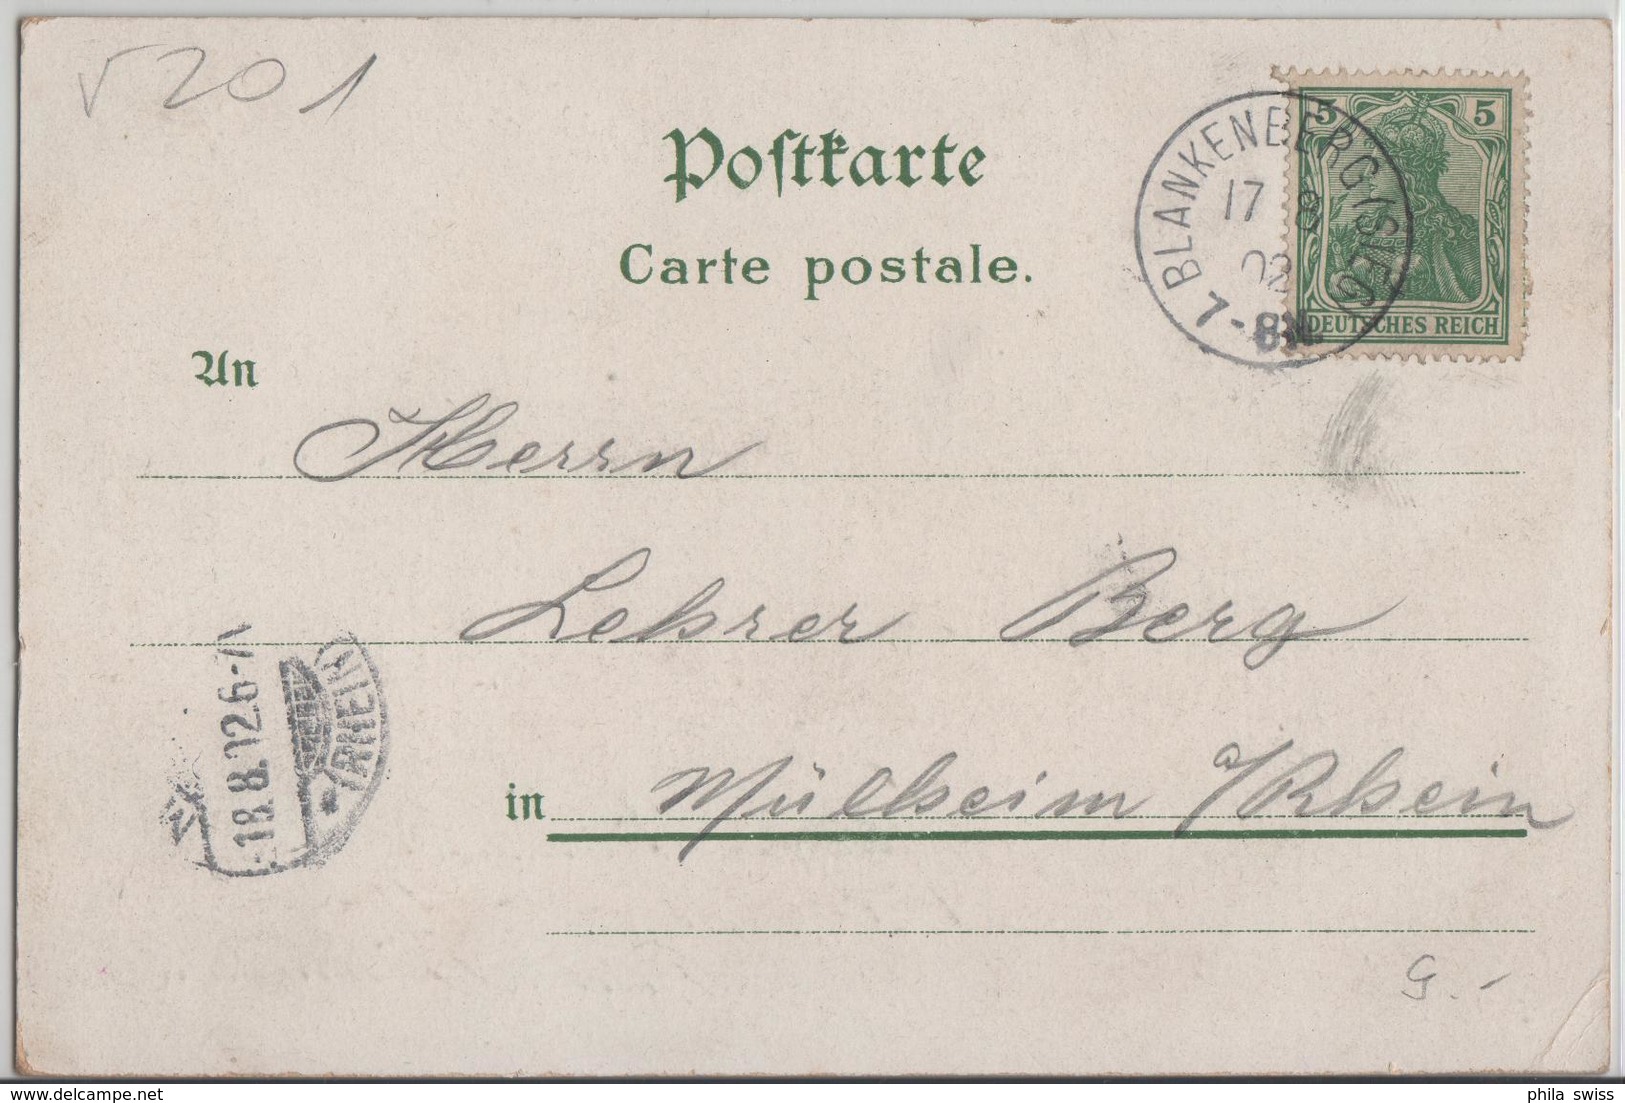 V 201
Postkarte
Carte postale.
5 5
DEUTSCHES REICH
BLANKENBERG (SIEG)
17 8
02
7-8N
An
Herrn
Lehrer Berg
in Mülheim a/Rhein
18.8.02.6-7
(RHEIN)
9.-
delcampe.net
phila swiss